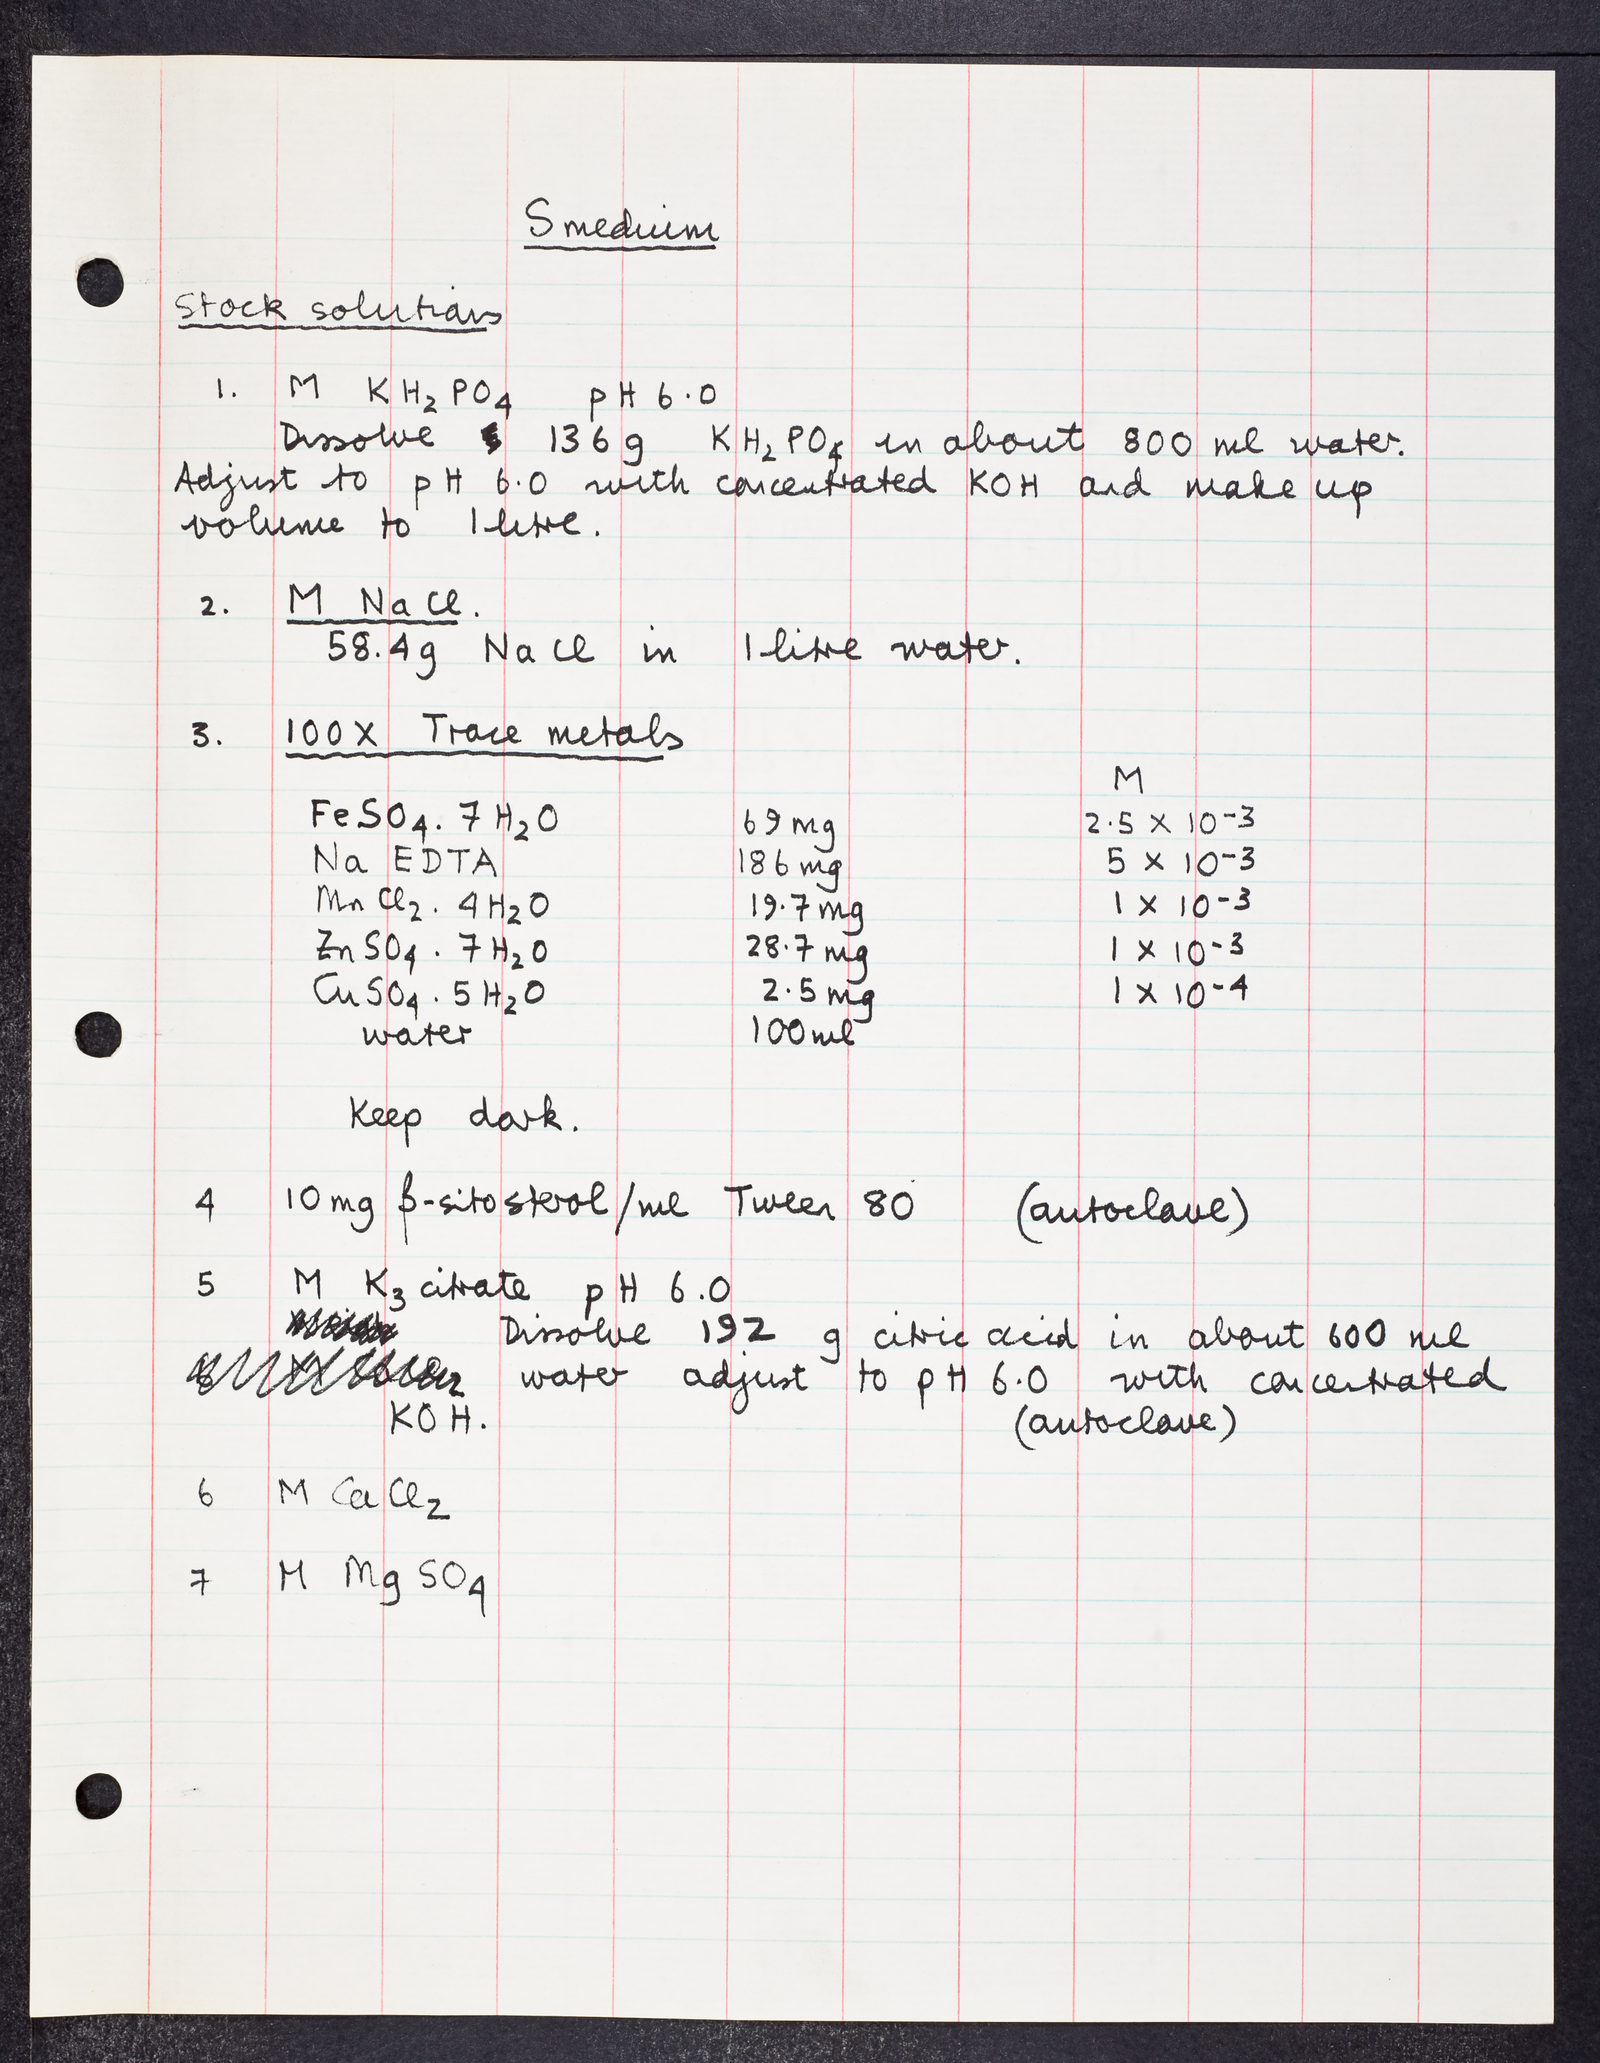 S medium
Stock solutions
1. M KH₂PO₄ pH 6.0
Dissolve 136g KH₂PO₄ in about 800 ml water.
Adjust to pH 6.0 with concentrated KOH and make up
volume to 1 litre.
2. M NaCl.
58.4g NaCl in 1 litre water.
3. 100X Trace metals
M
FeSO₄. 7H₂O 69 mg 2.5 X 10⁻³
Na EDTA 186 mg 5 X 10⁻³
MnCl₂. 4H₂O 19.7 mg 1 X 10⁻³
ZnSO₄. 7H₂O 28.7 mg 1 X 10⁻³
CuSO₄. 5H₂O 2.5 mg 1 X 10⁻⁴
water 100 ml
Keep dark.
4 10mg β-sitosterol/ml Tween 80 (autoclave)
5 M K₃ citrate pH 6.0
Dissolve 192 g citric acid in about 600 ml
water adjust to pH 6.0 with concentrated
KOH. (autoclave)
6 M CaCl₂
7 M MgSO₄